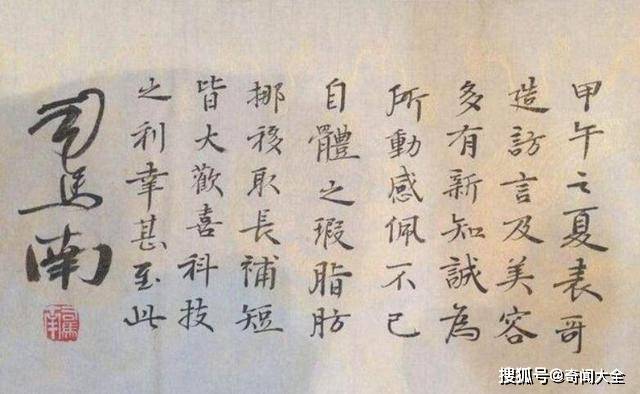 甲午之夏表哥
造訪言及美容
多有新知誠為
所動感佩不已
自體之瑕脂肪
挪移取長補短
皆大歡喜科技
之利幸甚至此
司馬南
搜狐号@奇闻大全